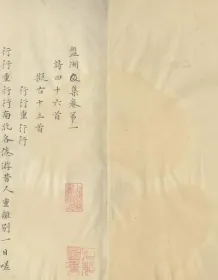 盤洲文集卷第一
詩四十六首
擬古十三首
行行重行行
行行重行行南北各德游昔人重離別一日嗟